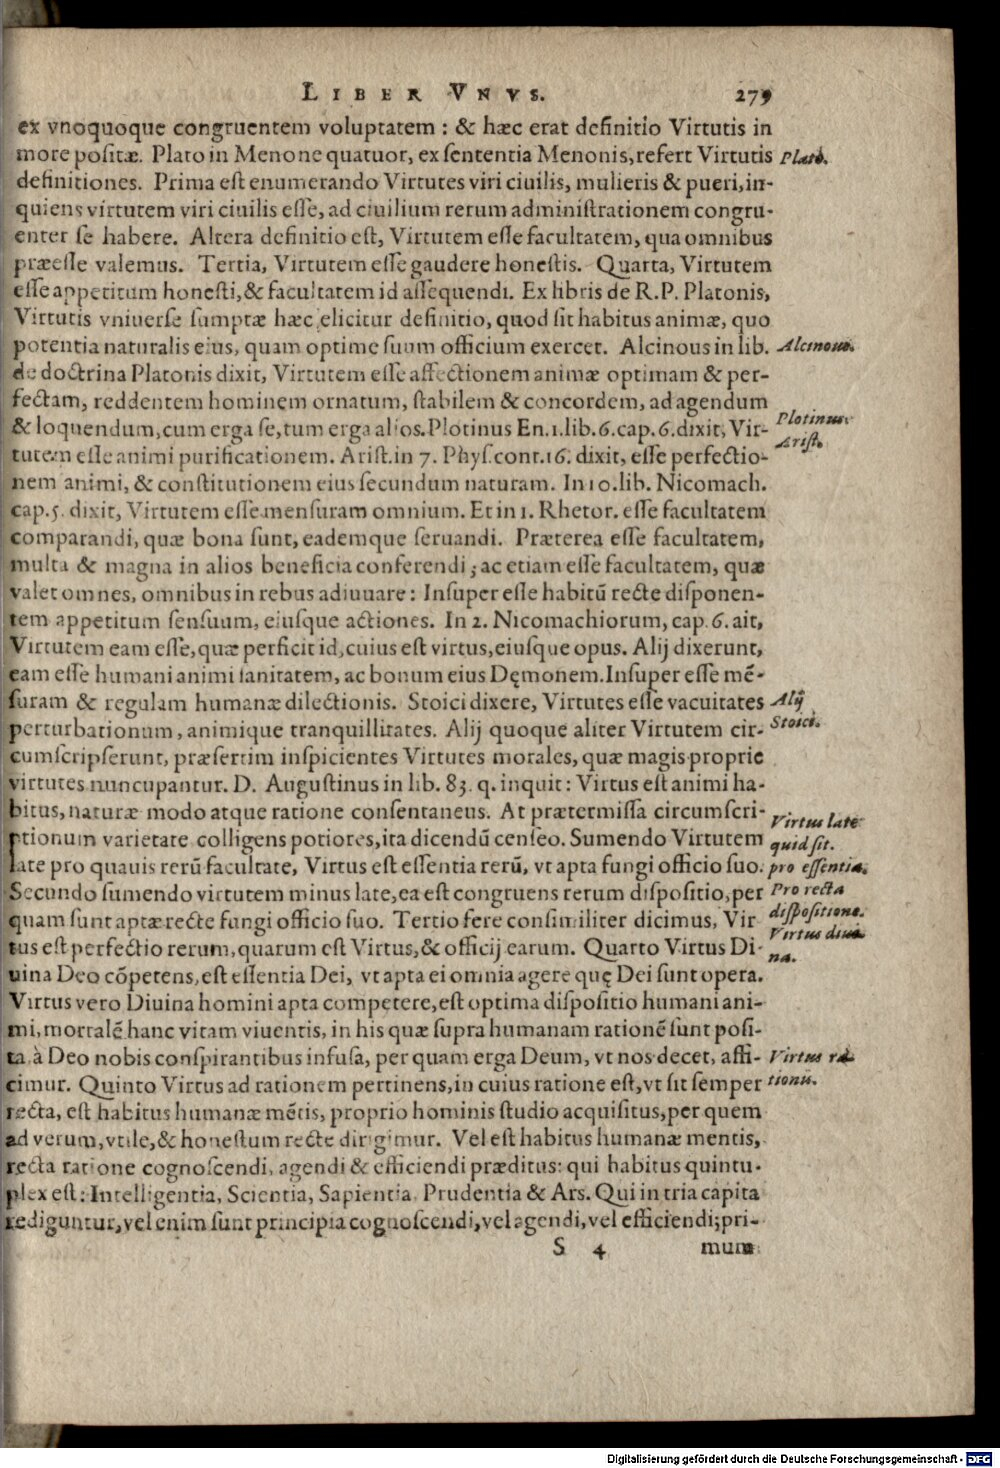 LIBER VNVS. 279
ex vnoquoque congruentem voluptatem : & hæc erat definitio Virtutis in
more positæ. Plato in Menone quatuor, ex sententia Menonis, refert Virtutis
Plato.
definitiones. Prima est enumerando Virtutes viri ciuilis, mulieris & pueri, in-
quiens virtutem viri ciuilis esse, ad ciuilium rerum administrationem congru-
enter se habere. Altera definitio est, Virtutem esse facultatem, qua omnibus
præesse valemus. Tertia, Virtutem esse gaudere honestis. Quarta, Virtutem
esse appetitum honesti, & facultatem id assequendi. Ex libris de R.P. Platonis,
Virtutis vniuerse sumptæ hæc elicitur definitio, quod sit habitus animæ, quo
potentia naturalis eius, quam optime suum officium exercet. Alcinous in lib.
Alcinous.
de doctrina Platonis dixit, Virtutem esse affectionem animæ optimam & per-
fectam, reddentem hominem ornatum, stabilem & concordem, ad agendum
& loquendum, cum erga se, tum erga alios. Plotinus En.1.lib.6.cap.6.dixit, Vir-
Plotinus
tutem esse animi purificationem. Arist. in 7. Phys. cont.16. dixit, esse perfectio-
Arist.
nem animi, & constitutionem eius secundum naturam. In 10.lib. Nicomach.
cap.5. dixit, Virtutem esse mensuram omnium. Et in 1. Rhetor. esse facultatem
comparandi, quæ bona sunt, eademque seruandi. Præterea esse facultatem,
multa & magna in alios beneficia conferendi; ac etiam esse facultatem, quæ
valet omnes, omnibus in rebus adiuuare: Insuper esse habitū recte disponen-
tem appetitum sensuum, eiusque actiones. In 2. Nicomachiorum, cap.6. ait,
Virtutem eam esse, quæ perficit id, cuius est virtus, eiusque opus. Alij dixerunt,
eam esse humani animi sanitatem, ac bonum eius Dęmonem. Insuper esse mē-
suram & regulam humanæ dilectionis. Stoici dixere, Virtutes esse vacuitates
Alij
perturbationum, animique tranquillitates. Alij quoque aliter Virtutem cir-
Stoici.
cumscripserunt, præsertim inspicientes Virtutes morales, quæ magis proprie
virtutes nuncupantur. D. Augustinus in lib. 83. q. inquit: Virtus est animi ha-
bitus, naturæ modo atque ratione consentaneus. At prætermissa circumscri-
ptionum varietate colligens potiores, ita dicendū censeo. Sumendo Virtutem
Virtus late
quid sit.
late pro quauis rerū facultate, Virtus est essentia rerū, vt apta fungi officio suo.
pro essentia.
Secundo sumendo virtutem minus late, ea est congruens rerum dispositio, per
Pro recta
quam sunt aptæ recte fungi officio suo. Tertio fere consimiliter dicimus, Vir
dispositione.
tus est perfectio rerum, quarum est Virtus, & officij earum. Quarto Virtus Di-
Virtus diui-
na.
uina Deo cōpetens, est essentia Dei, vt apta ei omnia agere quę Dei sunt opera.
Virtus vero Diuina homini apta competere, est optima dispositio humani ani-
mi, mortalē hanc vitam viuentis, in his quæ supra humanam rationē sunt posi-
ta, à Deo nobis conspirantibus infusa, per quam erga Deum, vt nos decet, affi-
Virtus ra-
cimur. Quinto Virtus ad rationem pertinens, in cuius ratione est, vt sit semper
tionis.
recta, est habitus humanæ mētis, proprio hominis studio acquisitus, per quem
ad verum, vtile, & honestum recte dirigimur. Vel est habitus humanæ mentis,
recta ratione cognoscendi, agendi & efficiendi præditus: qui habitus quintu-
plex est: Intelligentia, Scientia, Sapientia, Prudentia & Ars. Qui in tria capita
rediguntur, vel enim sunt principia cognoscendi, vel agendi, vel efficiendi; pri-
S 4 mum
Digitalisierung gefördert durch die Deutsche Forschungsgemeinschaft - DFG